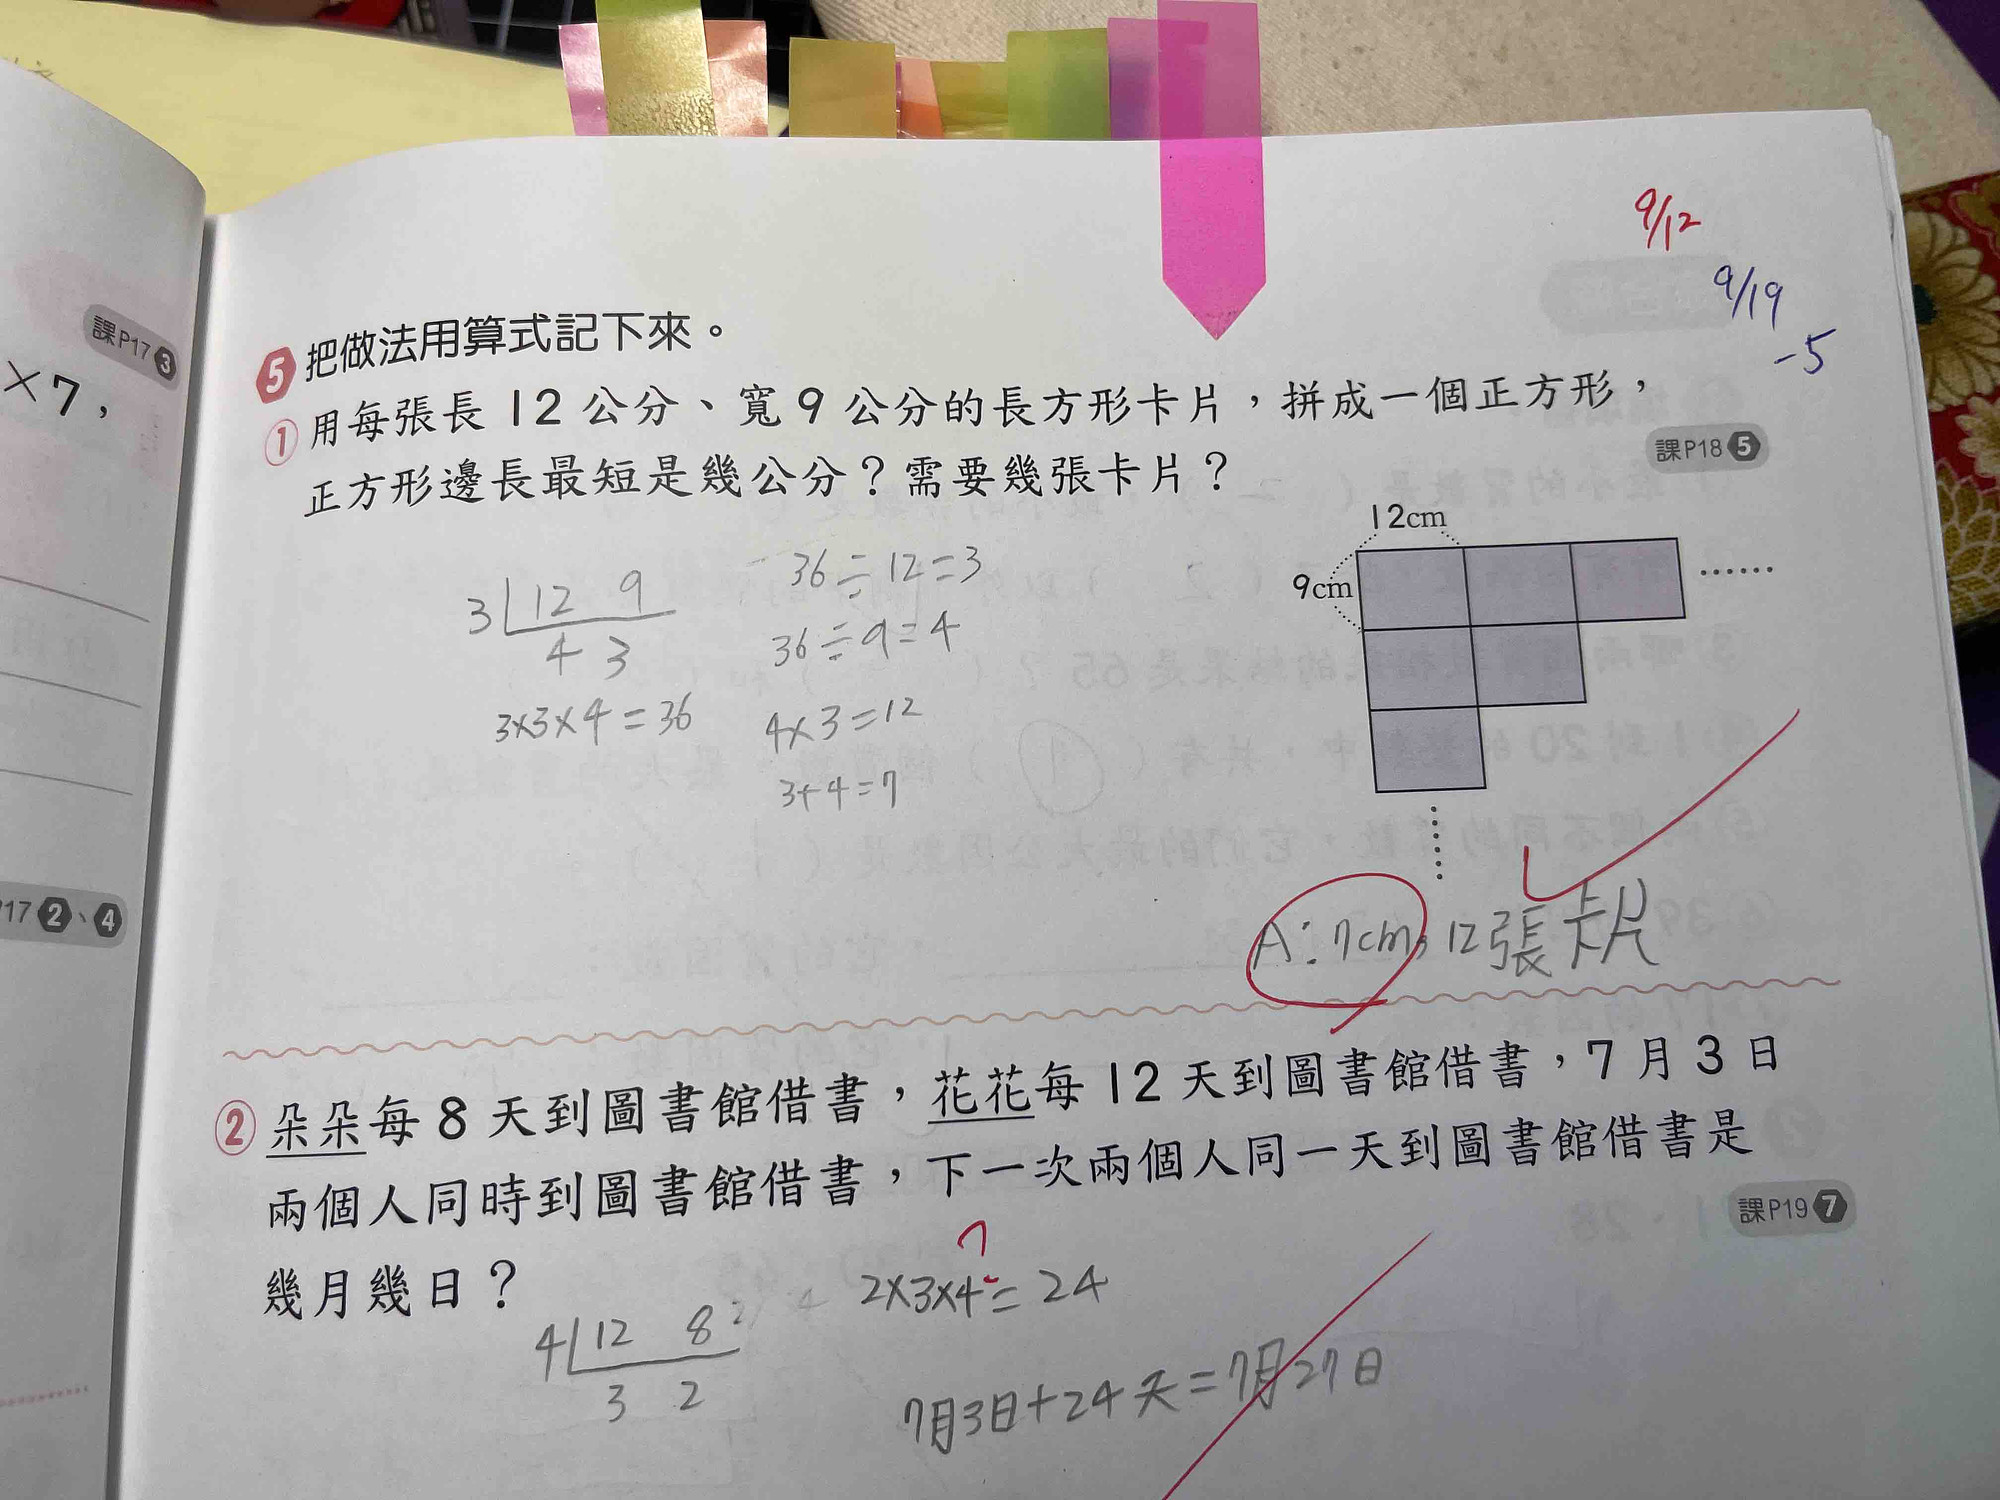 9/12
9/19
-5
課P17 3
×7，
P17 2、4
5 把做法用算式記下來。
① 用每張長 12 公分、寬 9 公分的長方形卡片，拼成一個正方形，
正方形邊長最短是幾公分？需要幾張卡片？
課P18 5
12cm
9cm
……
3 12 9
4 3
3×3×4=36
36÷12=3
36÷9=4
4×3=12
3+4=7
A：7cm，12張卡片
② 朵朵每 8 天到圖書館借書，花花每 12 天到圖書館借書，7 月 3 日
兩個人同時到圖書館借書，下一次兩個人同一天到圖書館借書是
幾月幾日？
課P19 7
?
2×3×4=24
4 12 8
3 2
7月3日+24天=7月27日